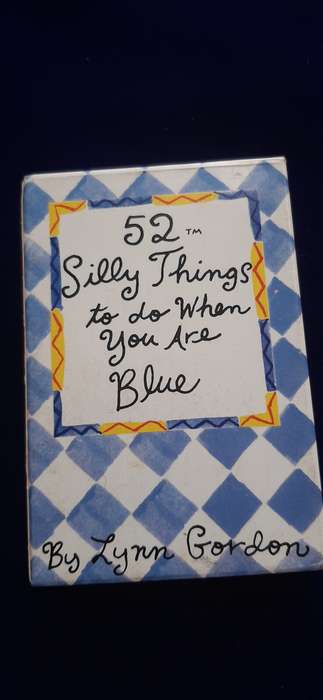 52™
Silly Things
to do When
You Are
Blue
By Lynn Gordon